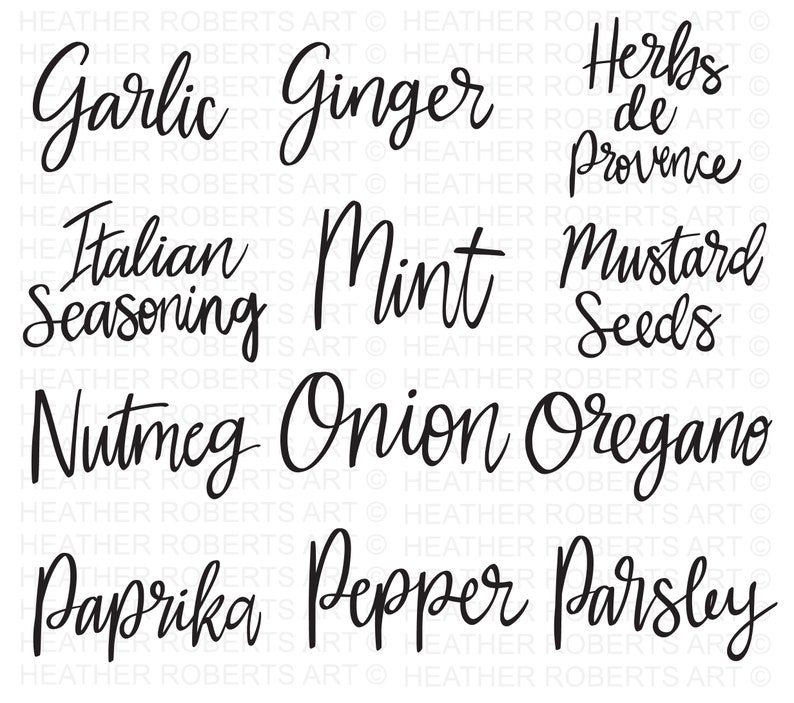 HEATHER ROBERTS ART © HEATHER ROBERTS ART ©
Garlic
Ginger
Herbs
de
Provence
Italian
Seasoning
Mint
Mustard
Seeds
Nutmeg
Onion
Oregano
Paprika
Pepper
Parsley